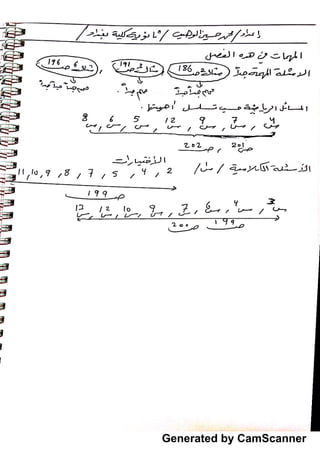 اعداد / محمد حسين الوهيب / ثانوية كلية بغداد /
المهمات في هذه الفصل
الاسئلة المهمة جداً مثال ص 186 , مثال 3 ص 191 , مثال 6 ص 196
مهم جداً جداً مهم جداً . مهم جداً جداً
المسائل الرياضية حسب تسلسل اهميتها .
س4 / س7 / س9 / س12 / س5 / س6 / س8
ص 201 , ص 202
الأختيارات
الاسئلة الكلامية / س1 / 2 , 4 , 5 , 7 , 8 , 9 , 10 , 11
ص 199
س3 / س4 / س6 / س7 / س9 / س10 / س12 / س13
ص 199 ص 200
Generated by CamScanner